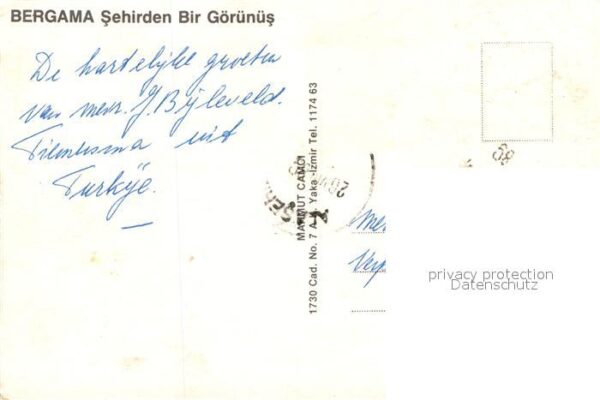 BERGAMA Şehirden Bir Görünüş
De hartelijke groeten
van mevr. J. Bijleveld.
uit
Turkije.
MAHMUT CAMCI
1730 Cad. No. 7 A K. Yaka-İzmir Tel. 1174 63
privacy protection
Datenschutz